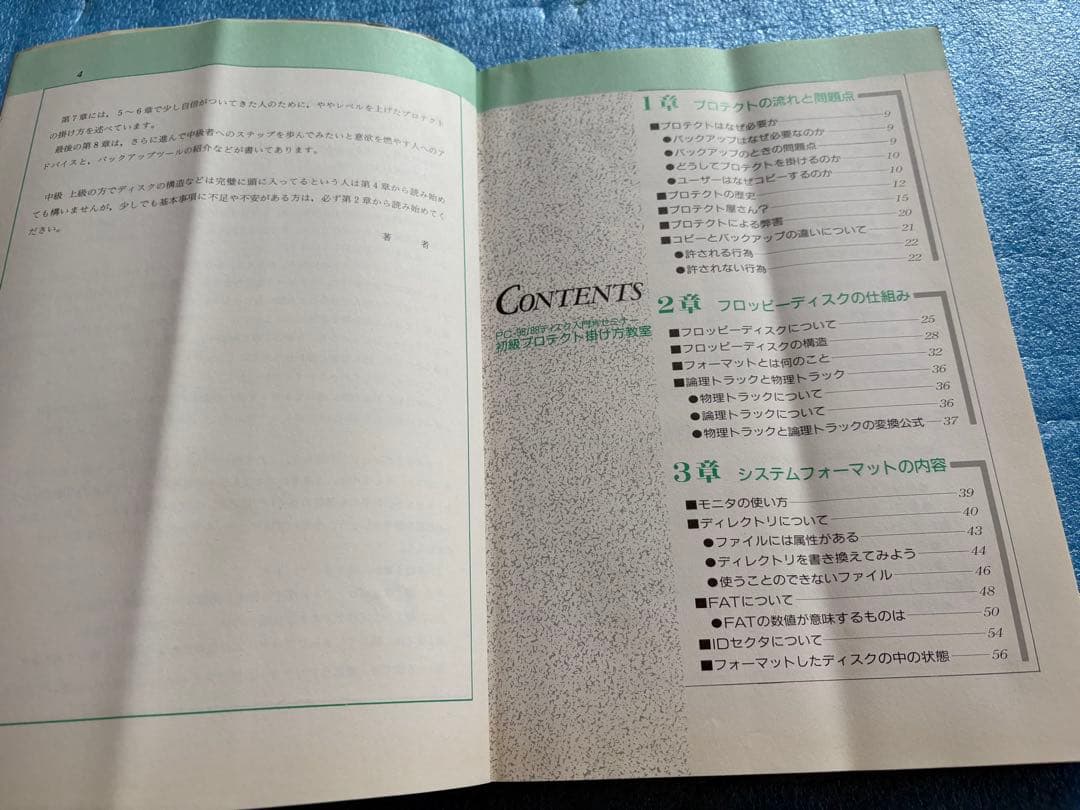 4
第7章には，5～6章で少し自信がついてきた人のために，ややレベルを上げたプロテクト
の掛け方を述べています。
最後の第8章は，さらに進んで中級者へのステップを歩んでみたいと意欲を燃やす人へのア
ドバイスと，バックアップツールの紹介などが書いてあります。
中級 上級の方でディスクの構造などは完璧に頭に入ってるという人は第4章から読み始め
ても構いませんが，少しでも基本事項に不足や不安がある方は，必ず第2章から読み始めてく
ださい。
著 者
CONTENTS
PC-98/88ディスク入門塾セミナー
初級プロテクト掛け方教室
1章 プロテクトの流れと問題点
■プロテクトはなぜ必要か 9
●バックアップはなぜ必要なのか 9
●バックアップのときの問題点 9
●どうしてプロテクトを掛けるのか 10
●ユーザーはなぜコピーするのか 10
■プロテクトの歴史 12
■プロテクト屋さん!? 15
■プロテクトによる弊害 20
■コピーとバックアップの違いについて 21
●許される行為 22
●許されない行為 22
2章 フロッピーディスクの仕組み
■フロッピーディスクについて 25
■フロッピーディスクの構造 28
■フォーマットとは何のこと 32
■論理トラックと物理トラック 36
●物理トラックについて 36
●論理トラックについて 36
●物理トラックと論理トラックの変換公式 37
3章 システムフォーマットの内容
■モニタの使い方 39
■ディレクトリについて 40
●ファイルには属性がある 43
●ディレクトリを書き換えてみよう 44
●使うことのできないファイル 46
■FATについて 48
●FATの数値が意味するものは 50
■IDセクタについて 54
■フォーマットしたディスクの中の状態 56